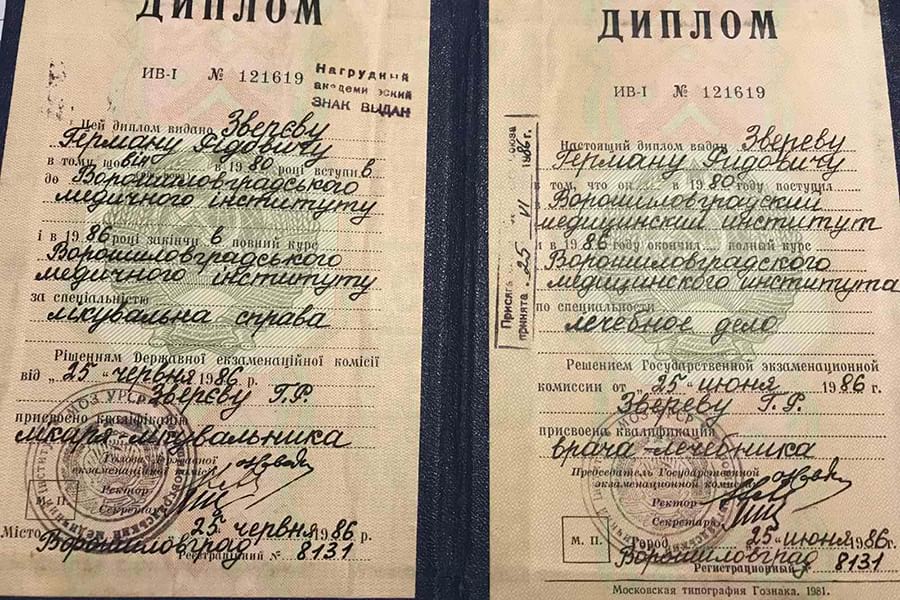 ДИПЛОМ
ИВ-I № 121619
Нагрудный
академический
ЗНАК ВЫДАН
Цей диплом видано Зверєву
Герману Фідовичу
в тому, що він в 1980 році вступив
до Ворошиловградського
медичного інституту
і в 1986 році закінчив повний курс
Ворошиловградського
медичного інституту
за спеціальністю
лікувальна справа
Рішенням Державної екзаменаційної комісії
від „25“ червня 1986 р.
Зверєву Г.Р.
присвоєно кваліфікацію
лікаря-лікувальника
Голова Державної
екзаменаційної комісії
Ректор
Секретар
М. П.
25 червня 1986 р.
Місто Ворошиловград
Реєстраційний № 8131
ДИПЛОМ
ИВ-I № 121619
Присяга
принята „25“ VI 1986г.
Настоящий диплом выдан Звереву
Герману
в том, что он в 1980 году поступил
в Ворошиловградский
медицинский институт
и в 1986 году окончил полный курс
Ворошиловградского
медицинского института
по специальности
лечебное дело
Решением Государственной экзаменационной
комиссии от „25“ июня 1986 г.
Звереву Г.Р.
присвоена квалификация
врача-лечебника
Председатель Государственной
экзаменационной комиссии
Ректор
Секретарь
М. П.
„25“ июня 1986г.
Город Ворошиловград
Регистрационный № 8131
Московская типография Гознака. 1981.